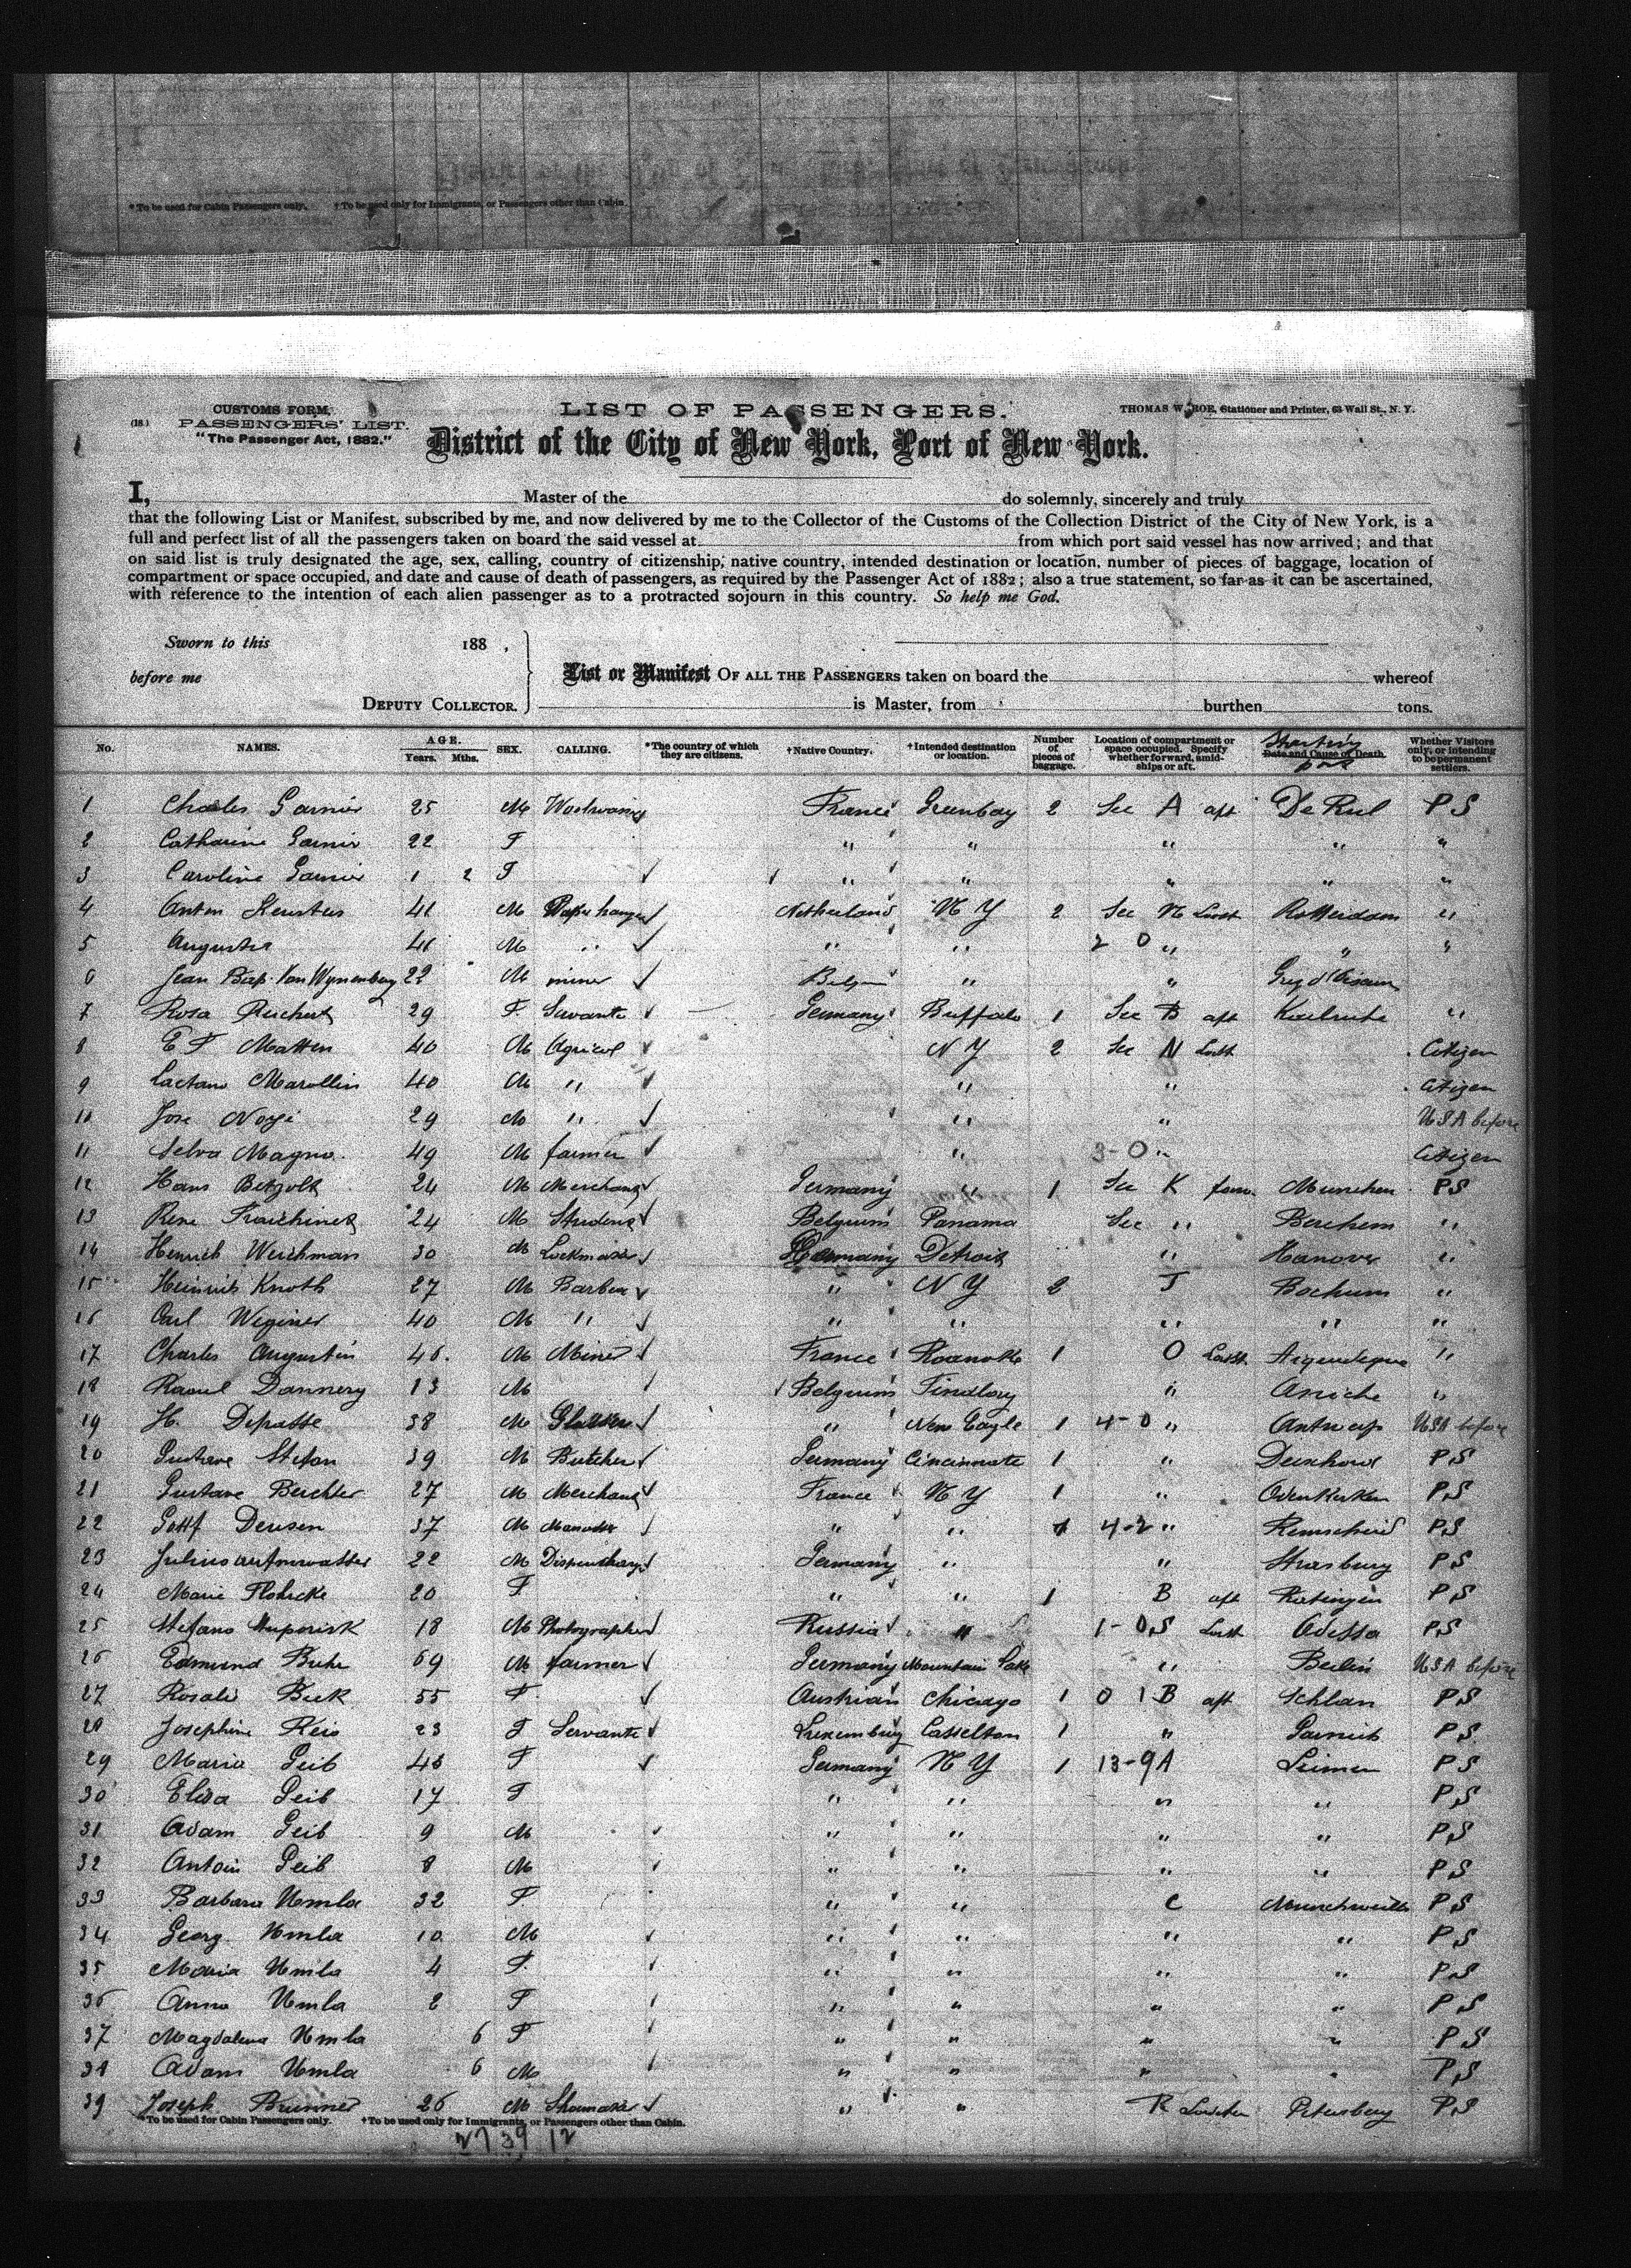 * To be used for Cabin Passengers only. † To be used only for Immigrants, or Passengers other than Cabin.
CUSTOMS FORM, LIST OF PASSENGERS. THOMAS W. ROE, Stationer and Printer, 63 Wall St., N. Y.
(18) PASSENGERS' LIST.
"The Passenger Act, 1882." District of the City of New York, Port of New York.
I, Master of the do solemnly, sincerely and truly
that the following List or Manifest, subscribed by me, and now delivered by me to the Collector of the Customs of the Collection District of the City of New York, is a
full and perfect list of all the passengers taken on board the said vessel at from which port said vessel has now arrived; and that
on said list is truly designated the age, sex, calling, country of citizenship, native country, intended destination or location, number of pieces of baggage, location of
compartment or space occupied, and date and cause of death of passengers, as required by the Passenger Act of 1882; also a true statement, so far as it can be ascertained,
with reference to the intention of each alien passenger as to a protracted sojourn in this country. So help me God.
Sworn to this 188 ,
before me List or Manifest OF ALL THE PASSENGERS taken on board the whereof
DEPUTY COLLECTOR. is Master, from burthen tons.
No. NAMES. AGE. Years. Mths. SEX. CALLING. *The country of which they are citizens. †Native Country. †Intended destination or location. Number of pieces of baggage. Location of compartment or space occupied. Specify whether forward, amidships or aft. Date and Cause of Death. Whether Visitors only, or intending to be permanent settlers.
1 Charles Garnier 25 M France Greenbay 2 Sec A aft PS
2 Catharine Garnir 22 F " " " " "
3 Caroline Garnier 1 2 F " " " " "
4 Anton 41 M Paperhanger Netherland N Y 2 Sec N Rotterdam "
5 Augustus 41 M " " " 2 0 " " "
6 Jean Bap. Van Wynenberg 22 M miner " "
7 Rosa Reichert 29 F Servante Germany Buffalo 1 Sec B aft Karlsruhe "
8 E F Matten 40 M Agricol N Y 2 Sec N Citizen
9 40 M " " " Citizen
10 Jose 29 M " " " USA before
11 Selva Magno 49 M farmer " 3-0 " Citizen
12 Hans Betzolt 24 M Merchant Germany " 1 Sec K Munchen PS
13 Rene 24 M Student Belgium Panama Sec " Berchem "
14 Henrich Weichman 30 M Germany Detroit " Hanover "
15 Heinrich Knoth 27 M Barber " N Y 2 J Bochum "
16 Carl Weginer 40 M " " " " " "
17 Charles Augustin 46 M Miner France Roanoke 1 O "
18 Raoul Dannery 13 M Belgium Findlay " Aniche "
19 H. Depasse 38 M " New Eagle 1 4-0 " Antwerp USA before
20 Gustave Stefan 39 M Butcher Germany Cincinnate 1 " PS
21 Gustave 27 M Merchant France N Y 1 " Odenkirken PS
22 Derisen 37 M " " 1 4-2 " Remscheid PS
23 Julius 22 M Germany " " Strasburg PS
24 Marie 20 F " " 1 B aft Ratingen PS
25 Stefano 18 M Photographer Russia " 1-0 S Odessa PS
26 Edmund 69 M farmer Germany Mountain Lake " Berlin USA before
27 Rosalie 55 F Austrian Chicago 1 0 1 B aft Schlan PS
28 Josephine Reis 23 F Servante Luxemburg Casselton 1 " Garnich PS
29 Maria Geib 43 F Germany N Y 1 13-9 A Leimen PS
30 Elisa Geib 17 F " " " " PS
31 Adam Geib 9 M " " " " PS
32 Antoin Geib 8 M " " " " PS
33 Barbara Humla 32 F " " C PS
34 Georg Humla 10 M " " " " PS
35 Maria Humla 4 F " " " " PS
36 Anna Humla 2 F " " " " PS
37 Magdalena Humla 6 F " " " " PS
38 Adam Humla 6 M " " " " PS
39 Joseph Brunner 26 M Shomaker " " R PS
*To be used for Cabin Passengers only. †To be used only for Immigrants, or Passengers other than Cabin.
27 39 12